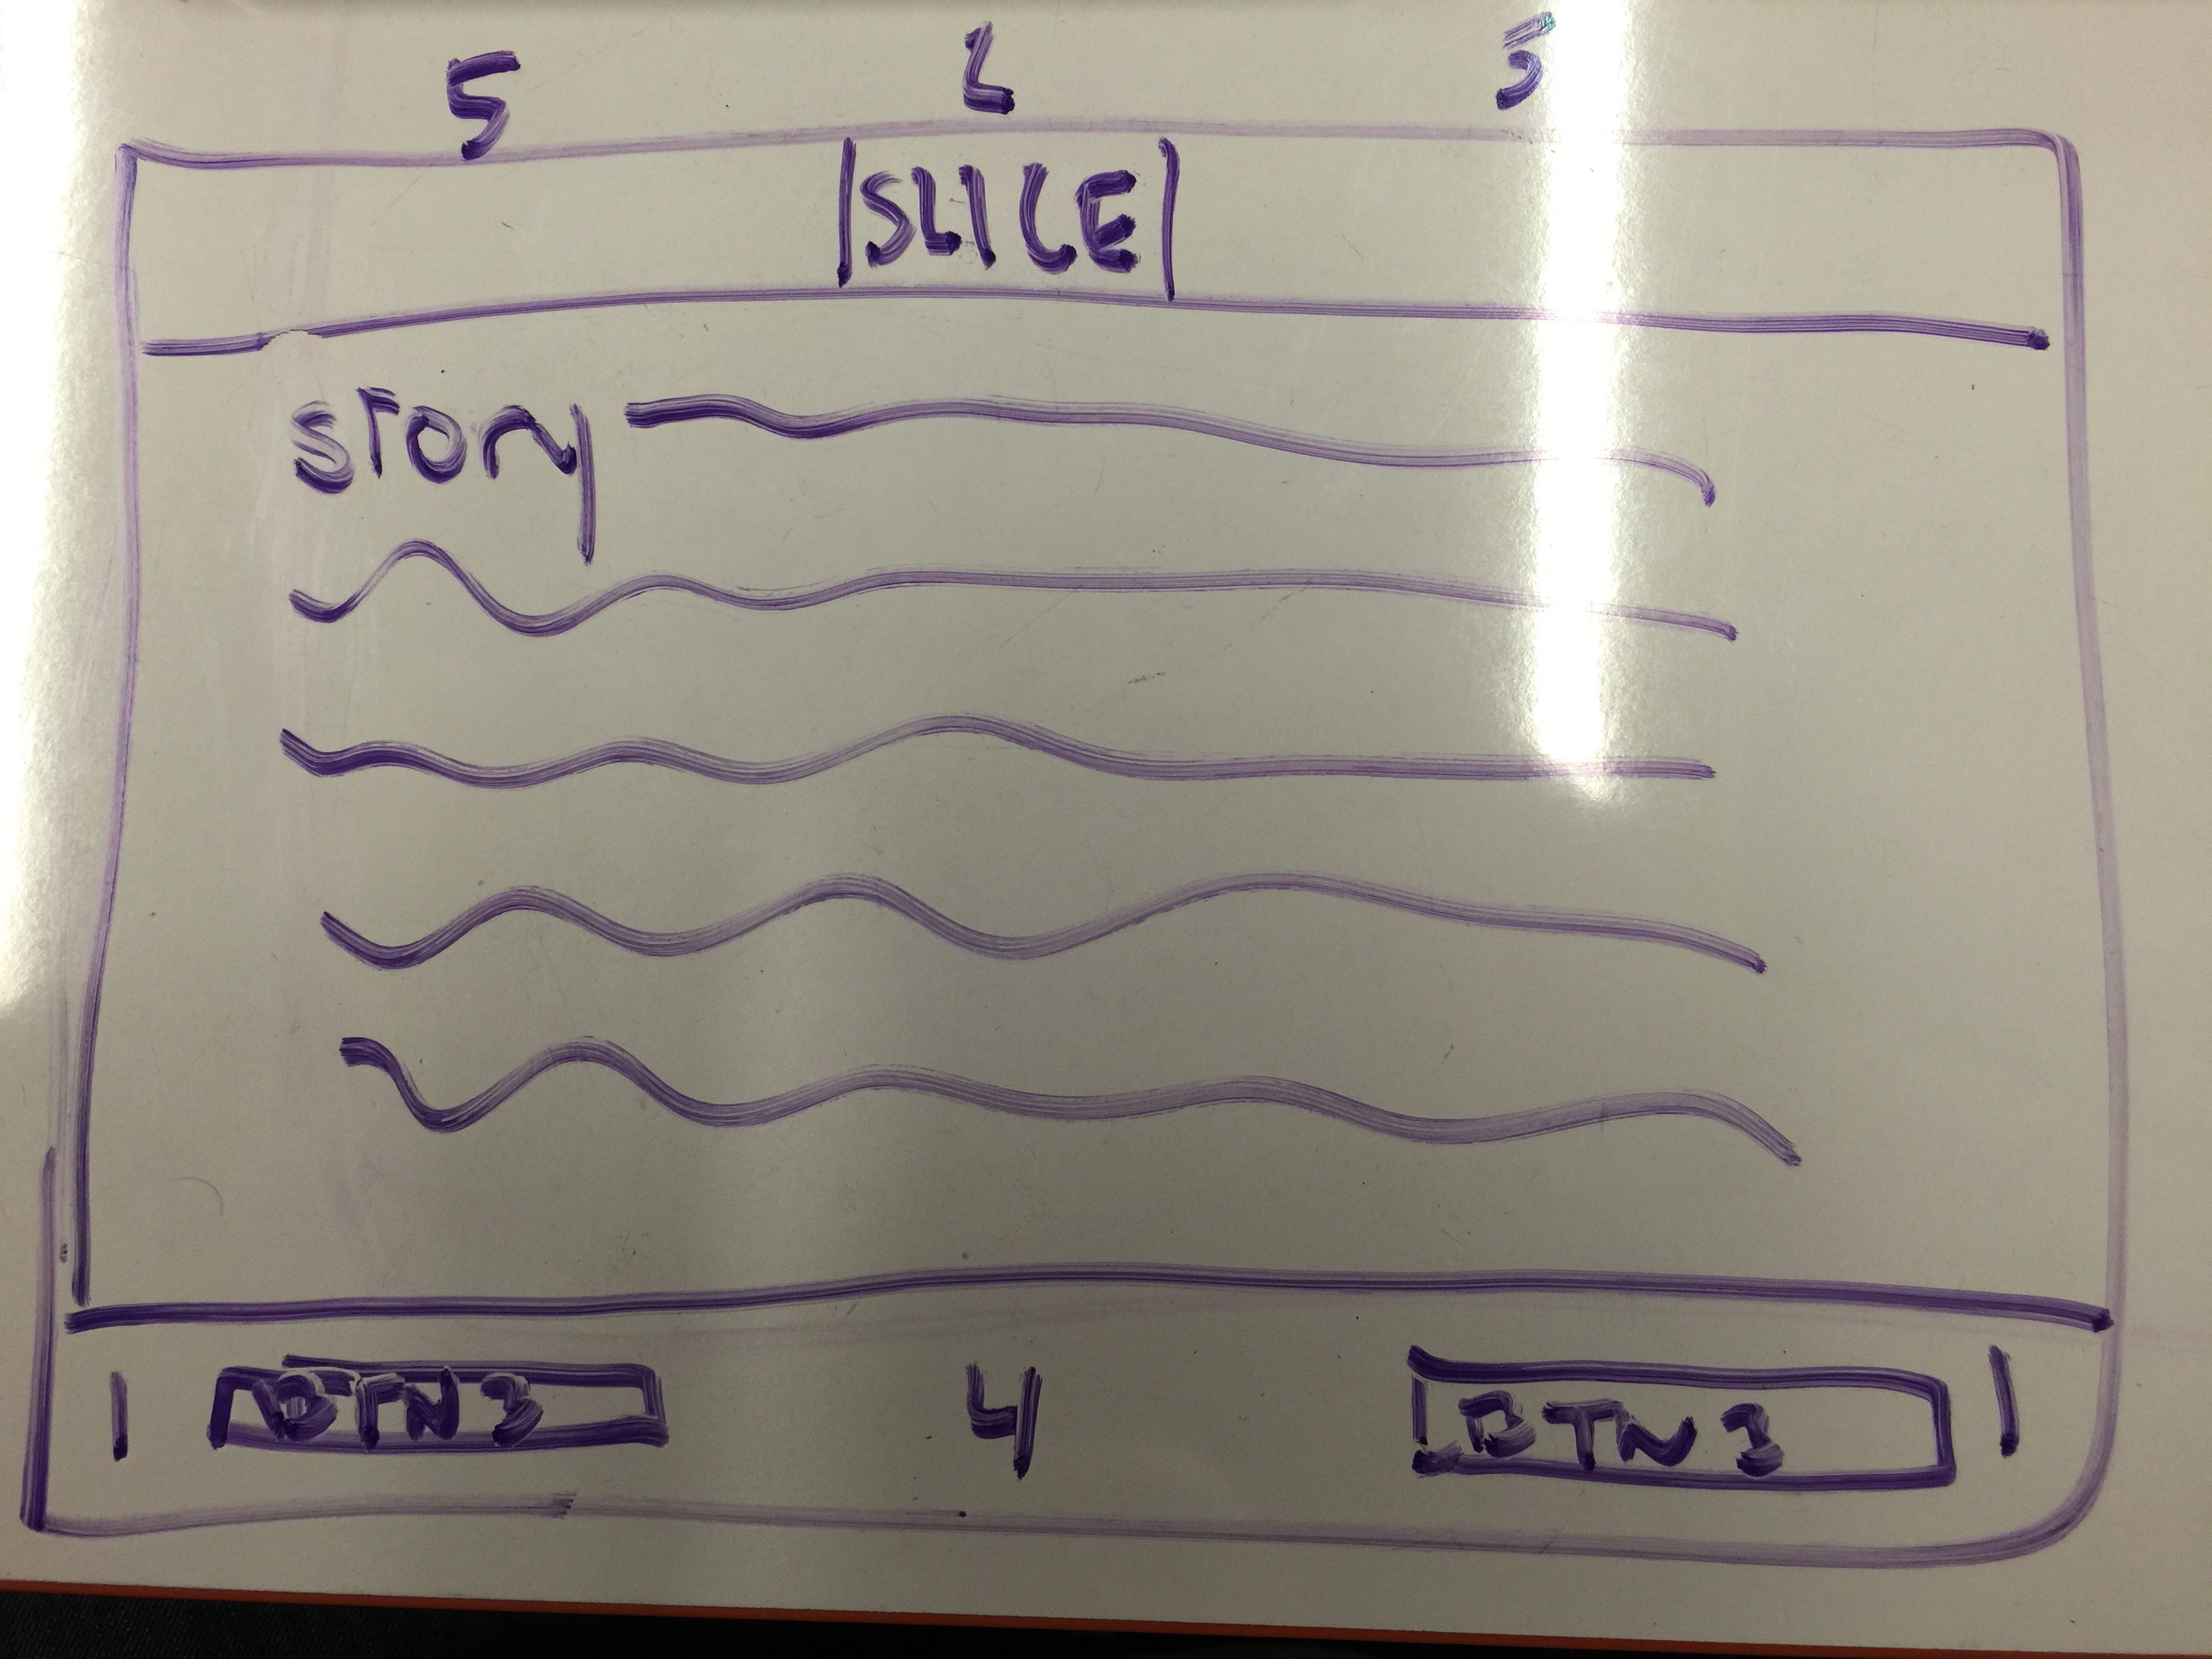 5 2 5
SLICE
story
1 BTN 3 4 BTN 3 1